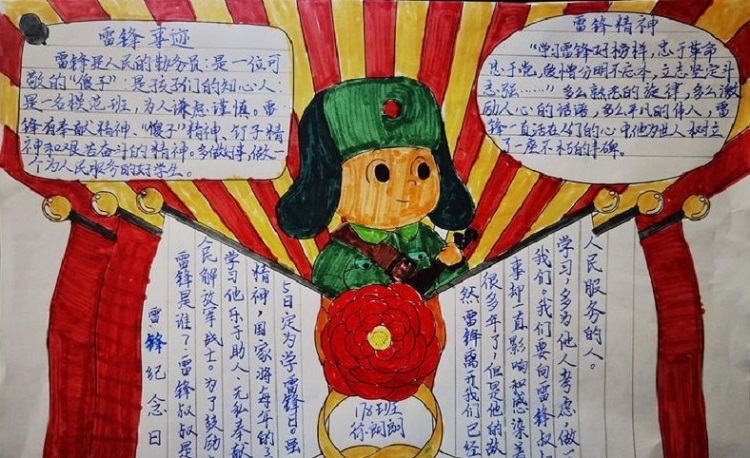 雷锋事迹
雷锋是人民的勤务员：是一位可
敬的“傻子”：是孩子们的知心人：
是一名模范班，为人谦虚谨慎。雷
锋有奉献精神、“傻子”精神、钉子精
神和艰苦奋斗的精神。多做好事，做一
个为人民服务的好学生。
雷锋精神
“学习雷锋好榜样，忠于革命
忠于党，爱憎分明不忘本，立志坚定斗
志强……”多么熟悉的旋律，多么激
励人心的话语，多么平凡的伟人，雷
锋一直活在人们的心中他为世人树立
了一座不朽的丰碑。
雷锋纪念日
雷锋是谁？雷锋叔叔是
人民解放军战士。为了鼓励
学习他乐于助人、无私奉献
精神，国家将每年的3
5日定为学雷锋日。虽
然雷锋离开我们已经
很多年了，但是他的故
事却一直影响和感染着
我们。我们要向雷锋叔叔
学习，多为他人考虑，做一
人民服务的人。
178班